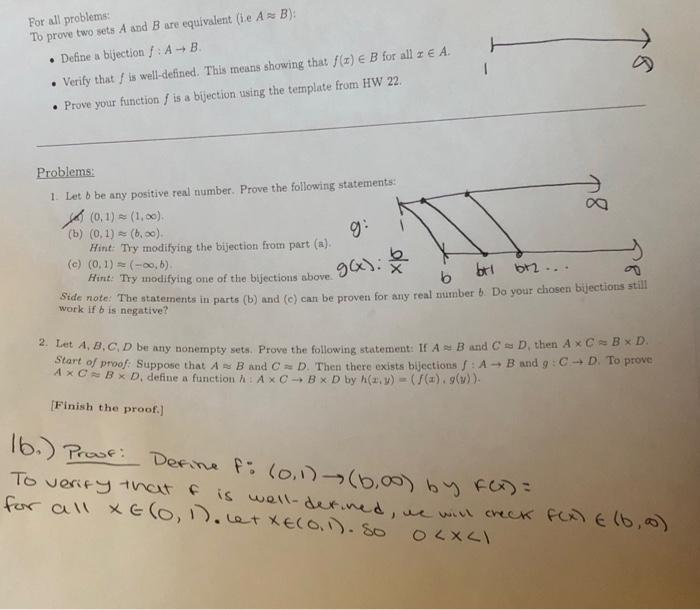 For all problems:
To prove two sets A and B are equivalent (i.e A ≈ B):
• Define a bijection f : A → B.
• Verify that f is well-defined. This means showing that f(x) ∈ B for all x ∈ A.
• Prove your function f is a bijection using the template from HW 22.
1 ∞
Problems:
1. Let b be any positive real number. Prove the following statements:
(a) (0, 1) ≈ (1, ∞).
(b) (0, 1) ≈ (b, ∞).
Hint: Try modifying the bijection from part (a).
(c) (0, 1) ≈ (−∞, b).
Hint: Try modifying one of the bijections above.
g:
1 ∞
g(x): b/x
b b+1 b+2 ... ∞
Side note: The statements in parts (b) and (c) can be proven for any real number b. Do your chosen bijections still
work if b is negative?
2. Let A, B, C, D be any nonempty sets. Prove the following statement: If A ≈ B and C ≈ D, then A × C ≈ B × D.
Start of proof: Suppose that A ≈ B and C ≈ D. Then there exists bijections f : A → B and g : C → D. To prove
A × C ≈ B × D, define a function h : A × C → B × D by h(x, y) = (f(x), g(y)).
[Finish the proof.]
1b.) Proof: Define f: (0,1) → (b,∞) by f(x) =
To verify that f is well-defined, we will check f(x) ∈ (b,∞)
for all x ∈ (0,1). Let x ∈ (0,1). So 0 < x < 1